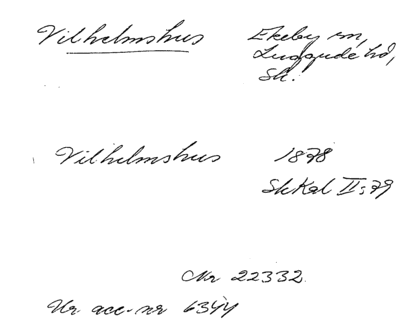 Vilhelmshus Ekeby sn,
Luggude hd,
Sk.
Vilhelmshus 1878
SkKal II:79
Nr 22332
Ur acc-nr 6344